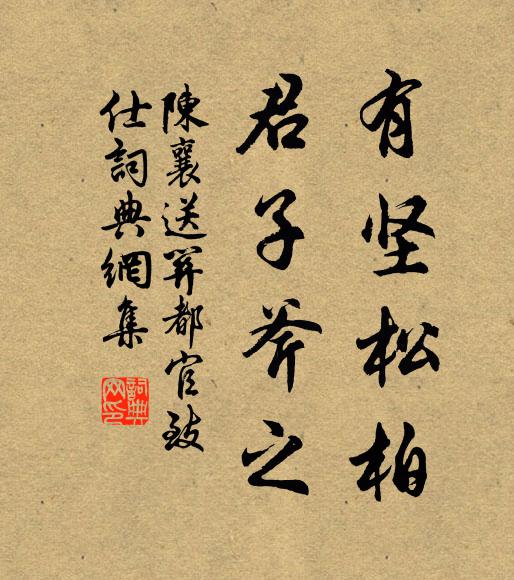 有坚松柏
君子斧之
陳襄送都官致
仕詞典網集
詞典
网印